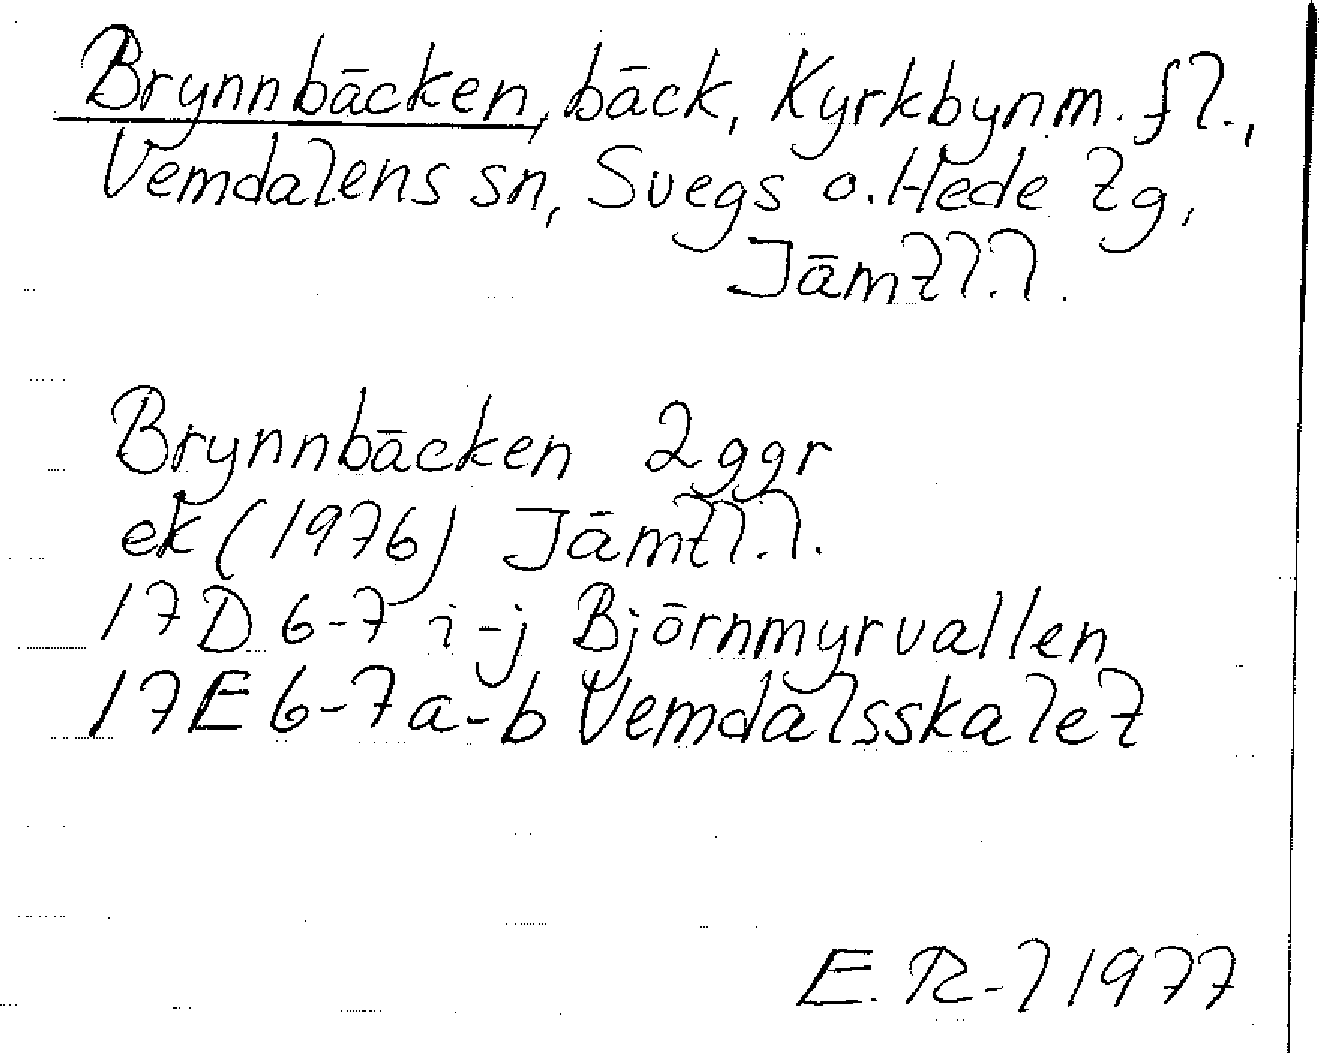 Brynnbäcken, bäck, Kyrkbyn m. fl.,
Vemdalens sn, Svegs o. Hede tg,
Jämtl. l.
Brynnbäcken 2 ggr
ek (1976) Jämtl. l.
17D 6-7 i-j Björnmyrvallen
17E 6-7 a-b Vemdalsskalet
E. R-l 1977